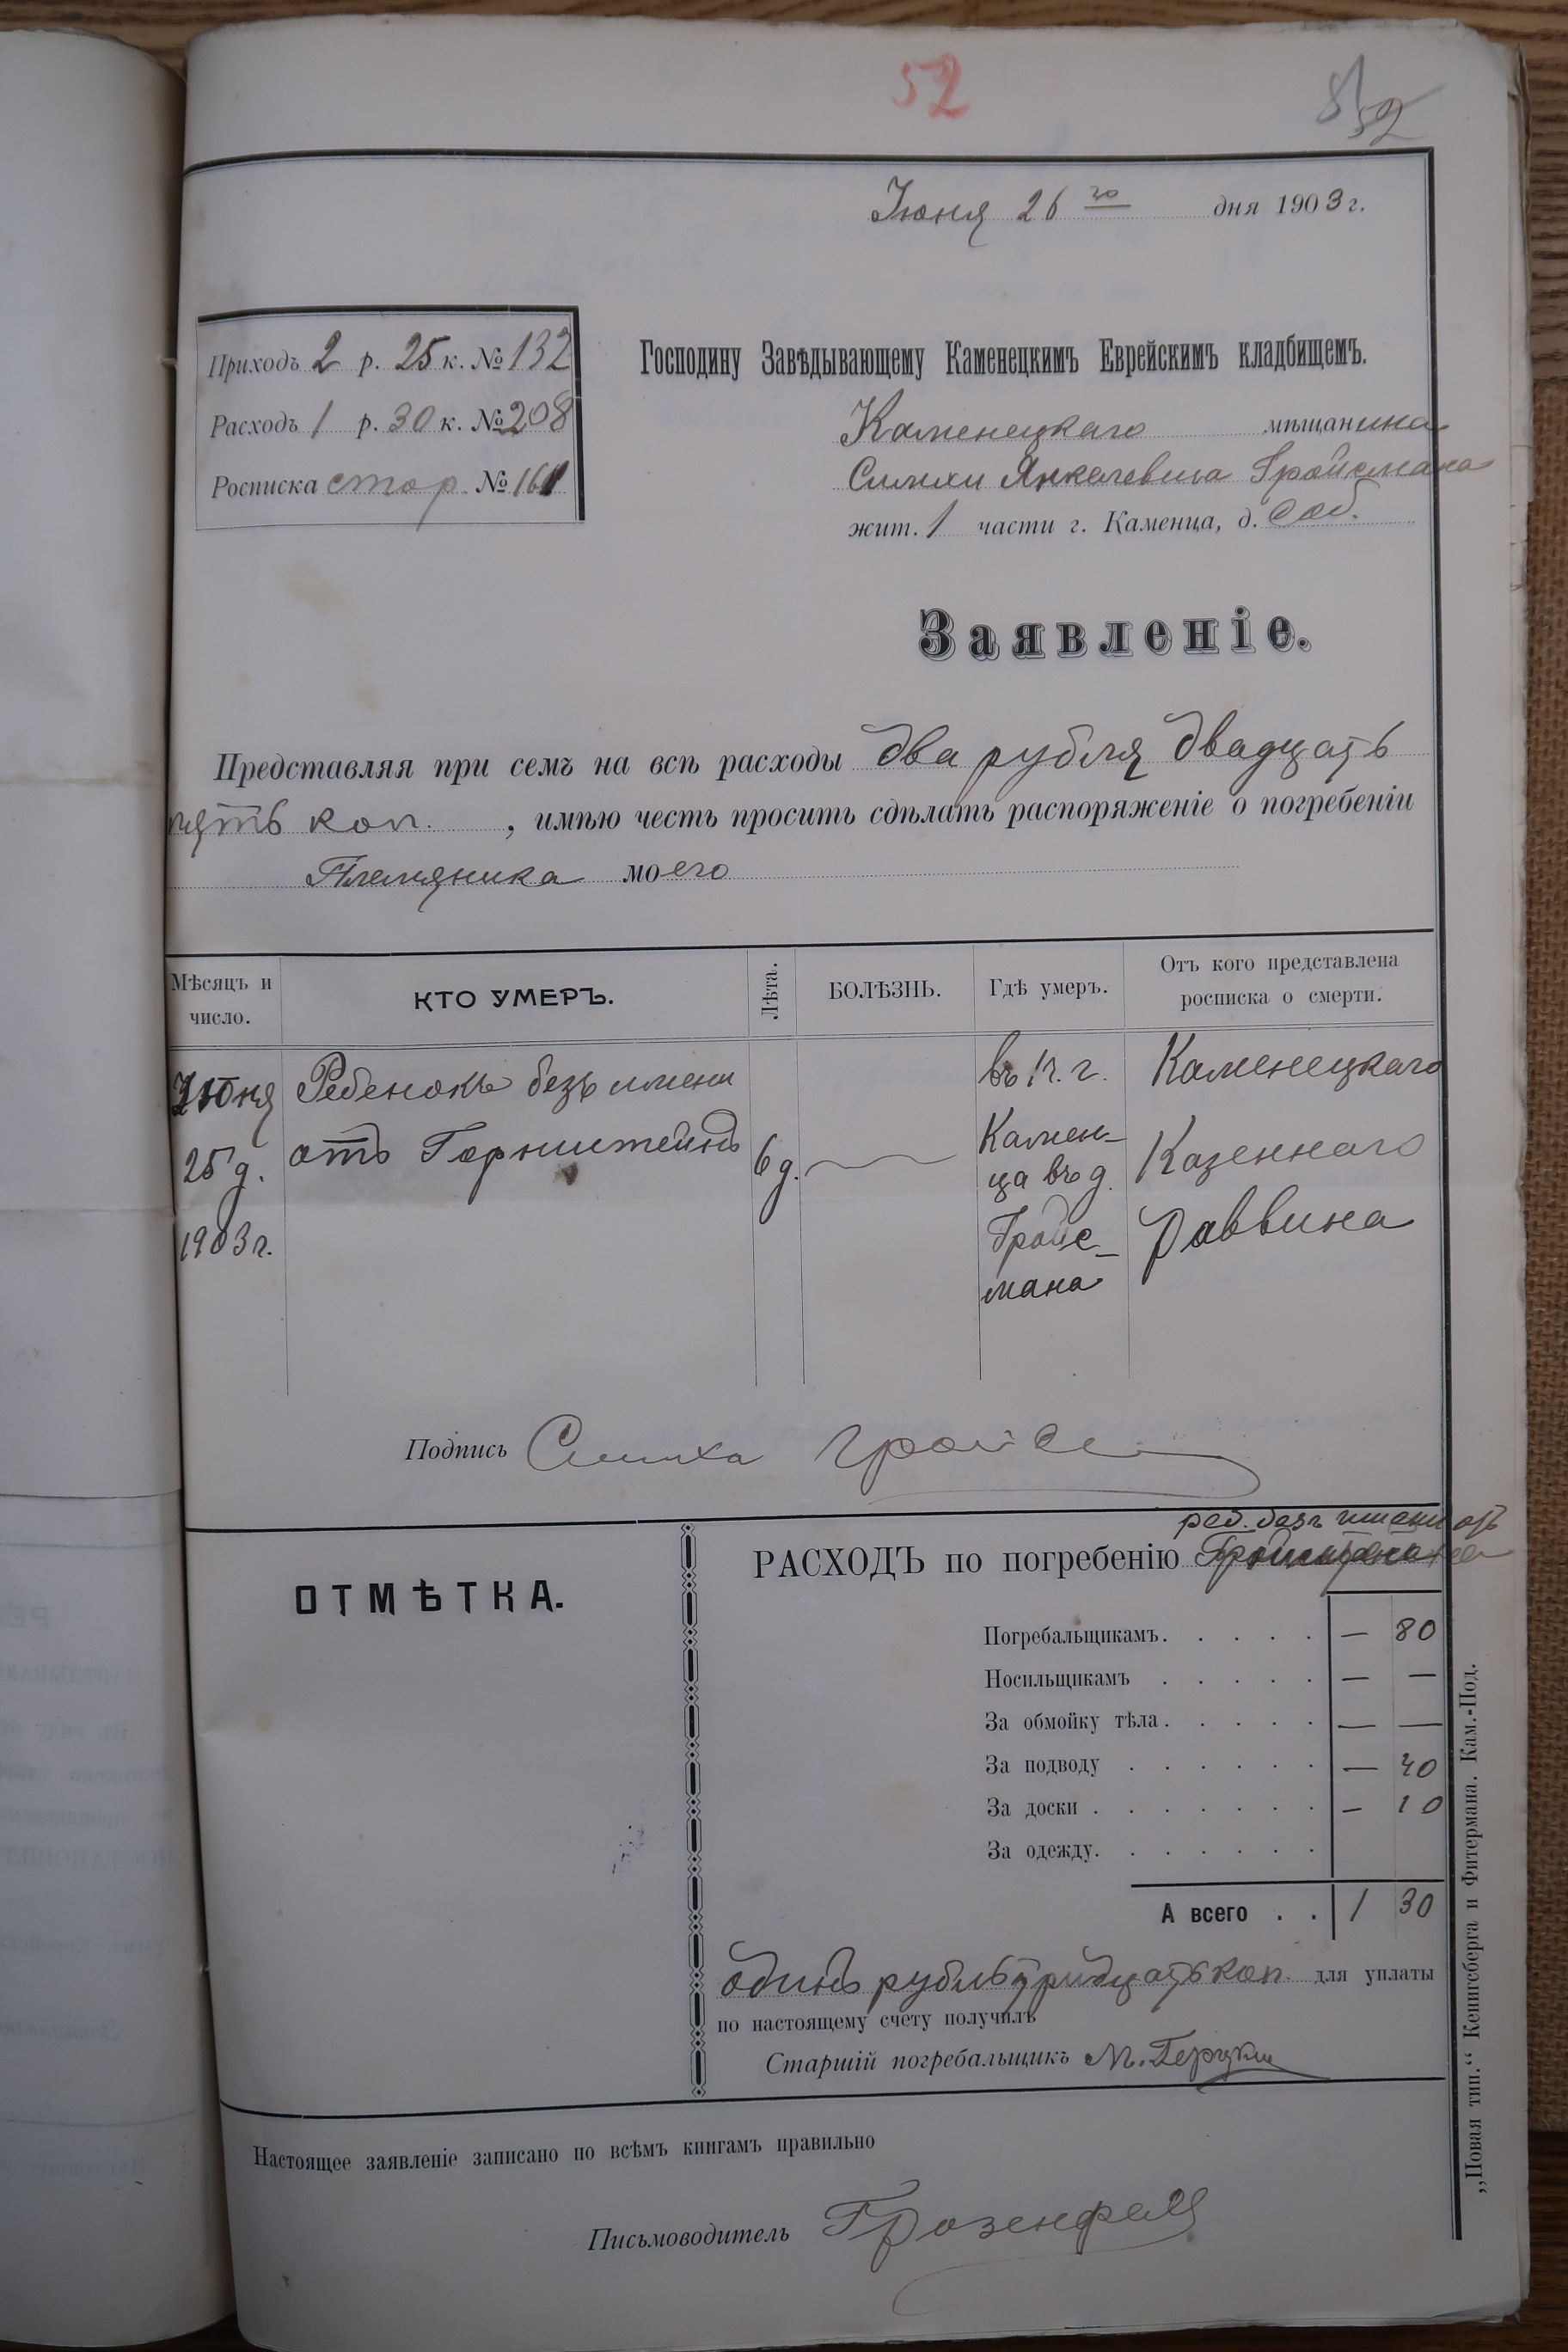 52
52
Іюня 26 го дня 1903 г.
Приходъ 2 р. 25 к. № 132
Расходъ 1 р. 30 к. № 208
Росписка стор. № 161
Господину Завѣдывающему Каменецкимъ Еврейскимъ кладбищемъ.
Каменецкаго мѣщанина
Симхи Янкелевича Гройсмана
жит. 1 части г. Каменца, д. Соб.
Заявленіе.
Представляя при семъ на всѣ расходы два рубля двадцать
пять коп. , имѣю честь просить сдѣлать распоряженіе о погребеніи
Племяника моего
Мѣсяцъ и число.
КТО УМЕРЪ.
Лѣта.
БОЛѢЗНЬ.
Гдѣ умеръ.
Отъ кого представлена росписка о смерти.
Іюня
25 д.
1903 г.
Ребенокъ безъ имени
отъ Горнштейнъ
6 д.
въ 1 ч. г.
Камен-
ца въ д.
Гройс-
мана
Каменецкаго
Казеннаго
Раввина
Подпись Симха Гройс
ОТМѢТКА.
реб. безъ имени отъ
РАСХОДЪ по погребенію
Погребальщикамъ. . . . . — 80
Носильщикамъ . . . . . — —
За обмойку тѣла. . . . . — —
За подводу . . . . . . — 40
За доски . . . . . . . — 10
За одежду. . . . . . .
А всего . . 1 30
одинъ рубль тридцать коп. для уплаты
по настоящему счету получилъ
Старшій погребальщикъ М.
Настоящее заявленіе записано по всѣмъ книгамъ правильно
Письмоводитель
„Новая тип.“ Кенигсберга и Фитермана. Кам.-Под.